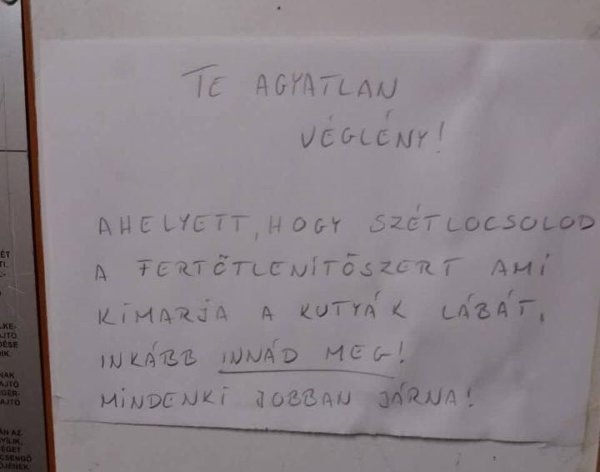 TE AGYATLAN
VÉGLÉNY!
AHELYETT, HOGY SZÉTLOCSOLOD
A FERTŐTLENÍTŐSZERT AMI
KIMARJA A KUTYÁK LÁBÁT,
INKÁBB INNÁD MEG!
MINDENKI JOBBAN JÁRNA!